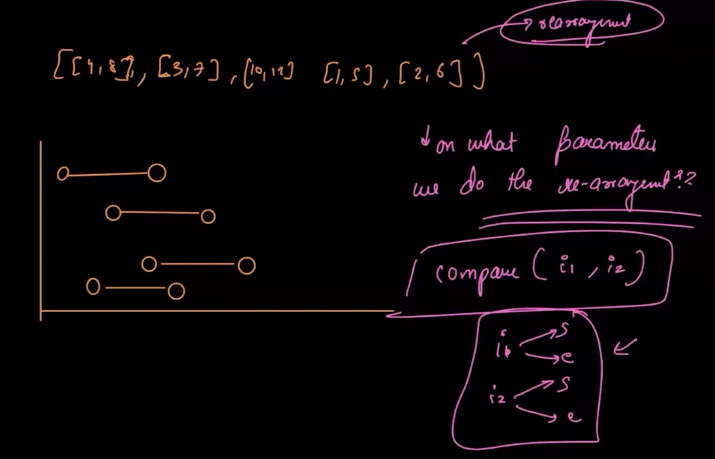 rearrangement
[[4,8], [3,7], [10,12] [1,5], [2,6]]
↓ on what parameters
we do the re-arrangement??
compare (i1, i2)
i1 → s
→ e
i2 → s
→ e